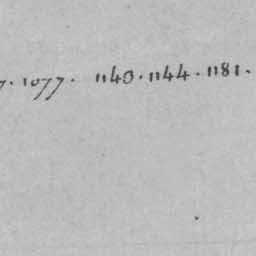 7. 1077. 1143. 1144. 1181.